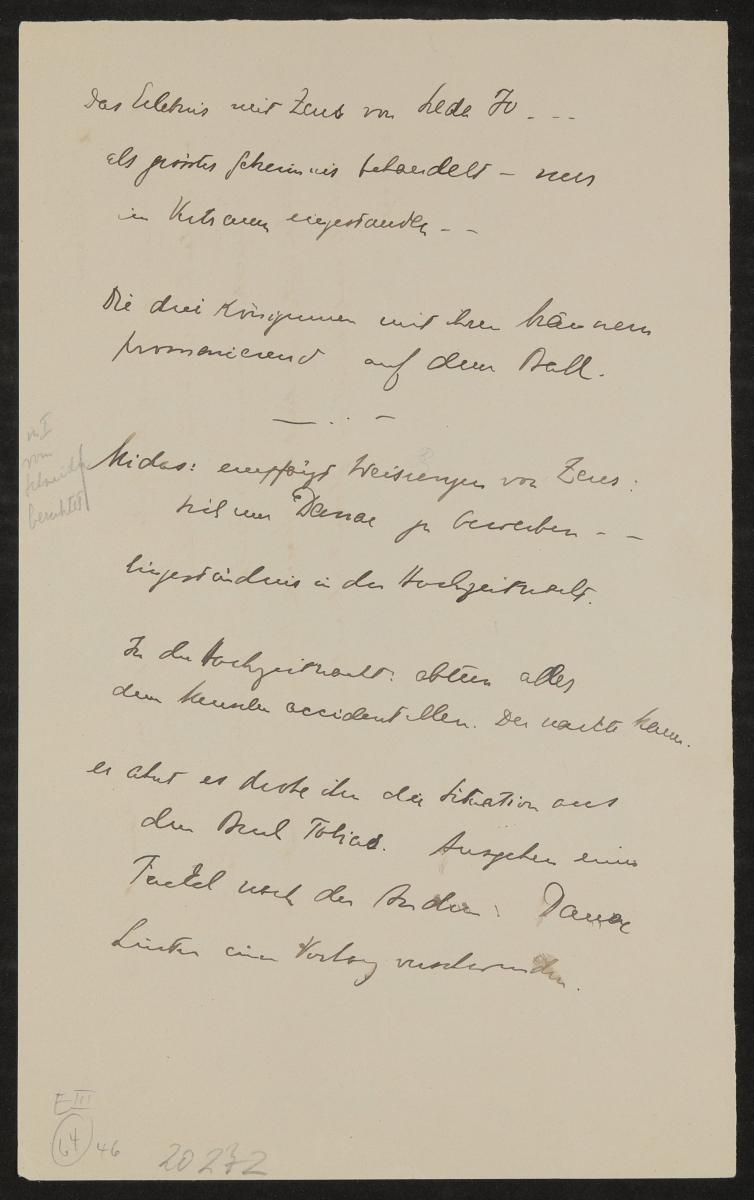 Das Erlebnis mit Zeus von Leda Jo - - -
als grösstes Geheimnis behandelt – nur
im Vertrauen eingestanden - -
Die drei Königinnen mit ihren Männern
promenierend auf dem Ball.
— . . –
in I
vom
berichtet
Midas: empfängt Weisungen von Zeus:
sich um Danae zu bewerben - -
Eingeständnis in der Hochzeitsnacht.
In der Hochzeitsnacht: abtun alles
dem Menschen accidentellen. Der nackte Mann.
er ahnt es drohe ihm die Situation aus
dem Buch Tobias. Ausgehen einer
Fackel nach der Andern: Danae
hinter einem Vorhang verschwunden.
E III
64 46
20272